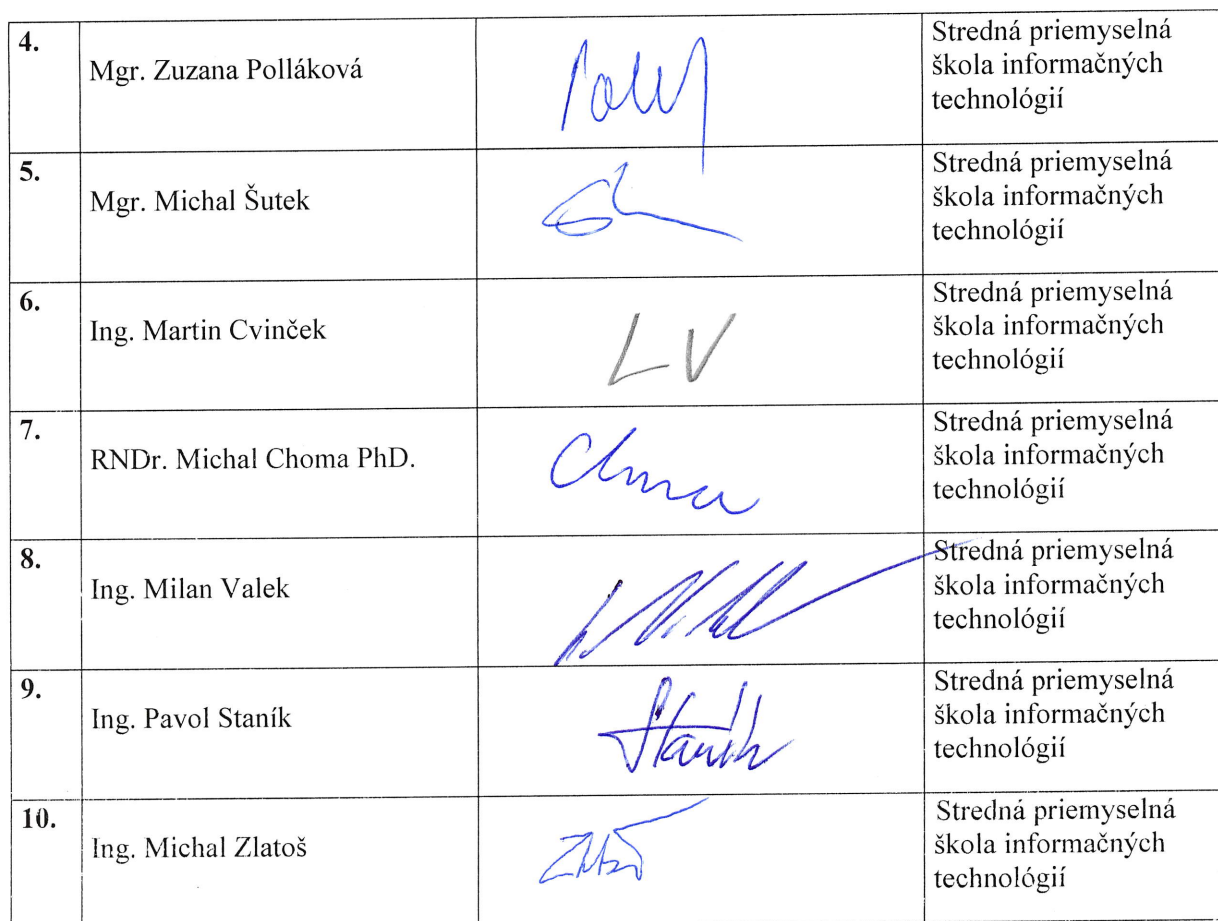 4.
Mgr. Zuzana Polláková
Stredná priemyselná
škola informačných
technológií
5.
Mgr. Michal Šutek
Stredná priemyselná
škola informačných
technológií
6.
Ing. Martin Cvinček
LV
Stredná priemyselná
škola informačných
technológií
7.
RNDr. Michal Choma PhD.
Stredná priemyselná
škola informačných
technológií
8.
Ing. Milan Valek
Stredná priemyselná
škola informačných
technológií
9.
Ing. Pavol Staník
Staník
Stredná priemyselná
škola informačných
technológií
10.
Ing. Michal Zlatoš
Stredná priemyselná
škola informačných
technológií